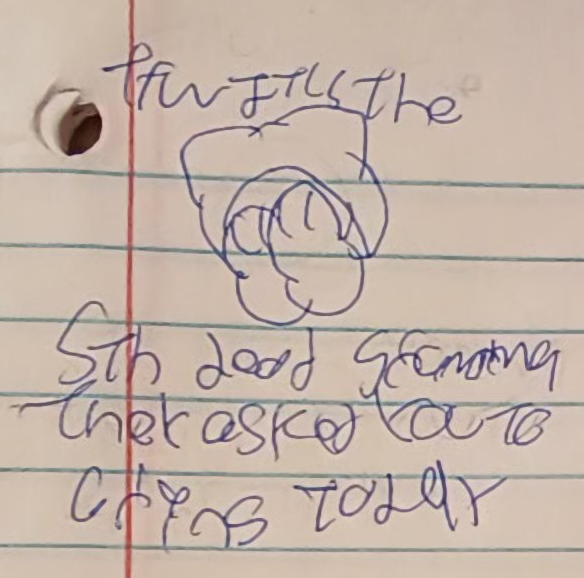 tfw ITIS The
5Th dead Grandma
Thet asked You To
Crying TODAY